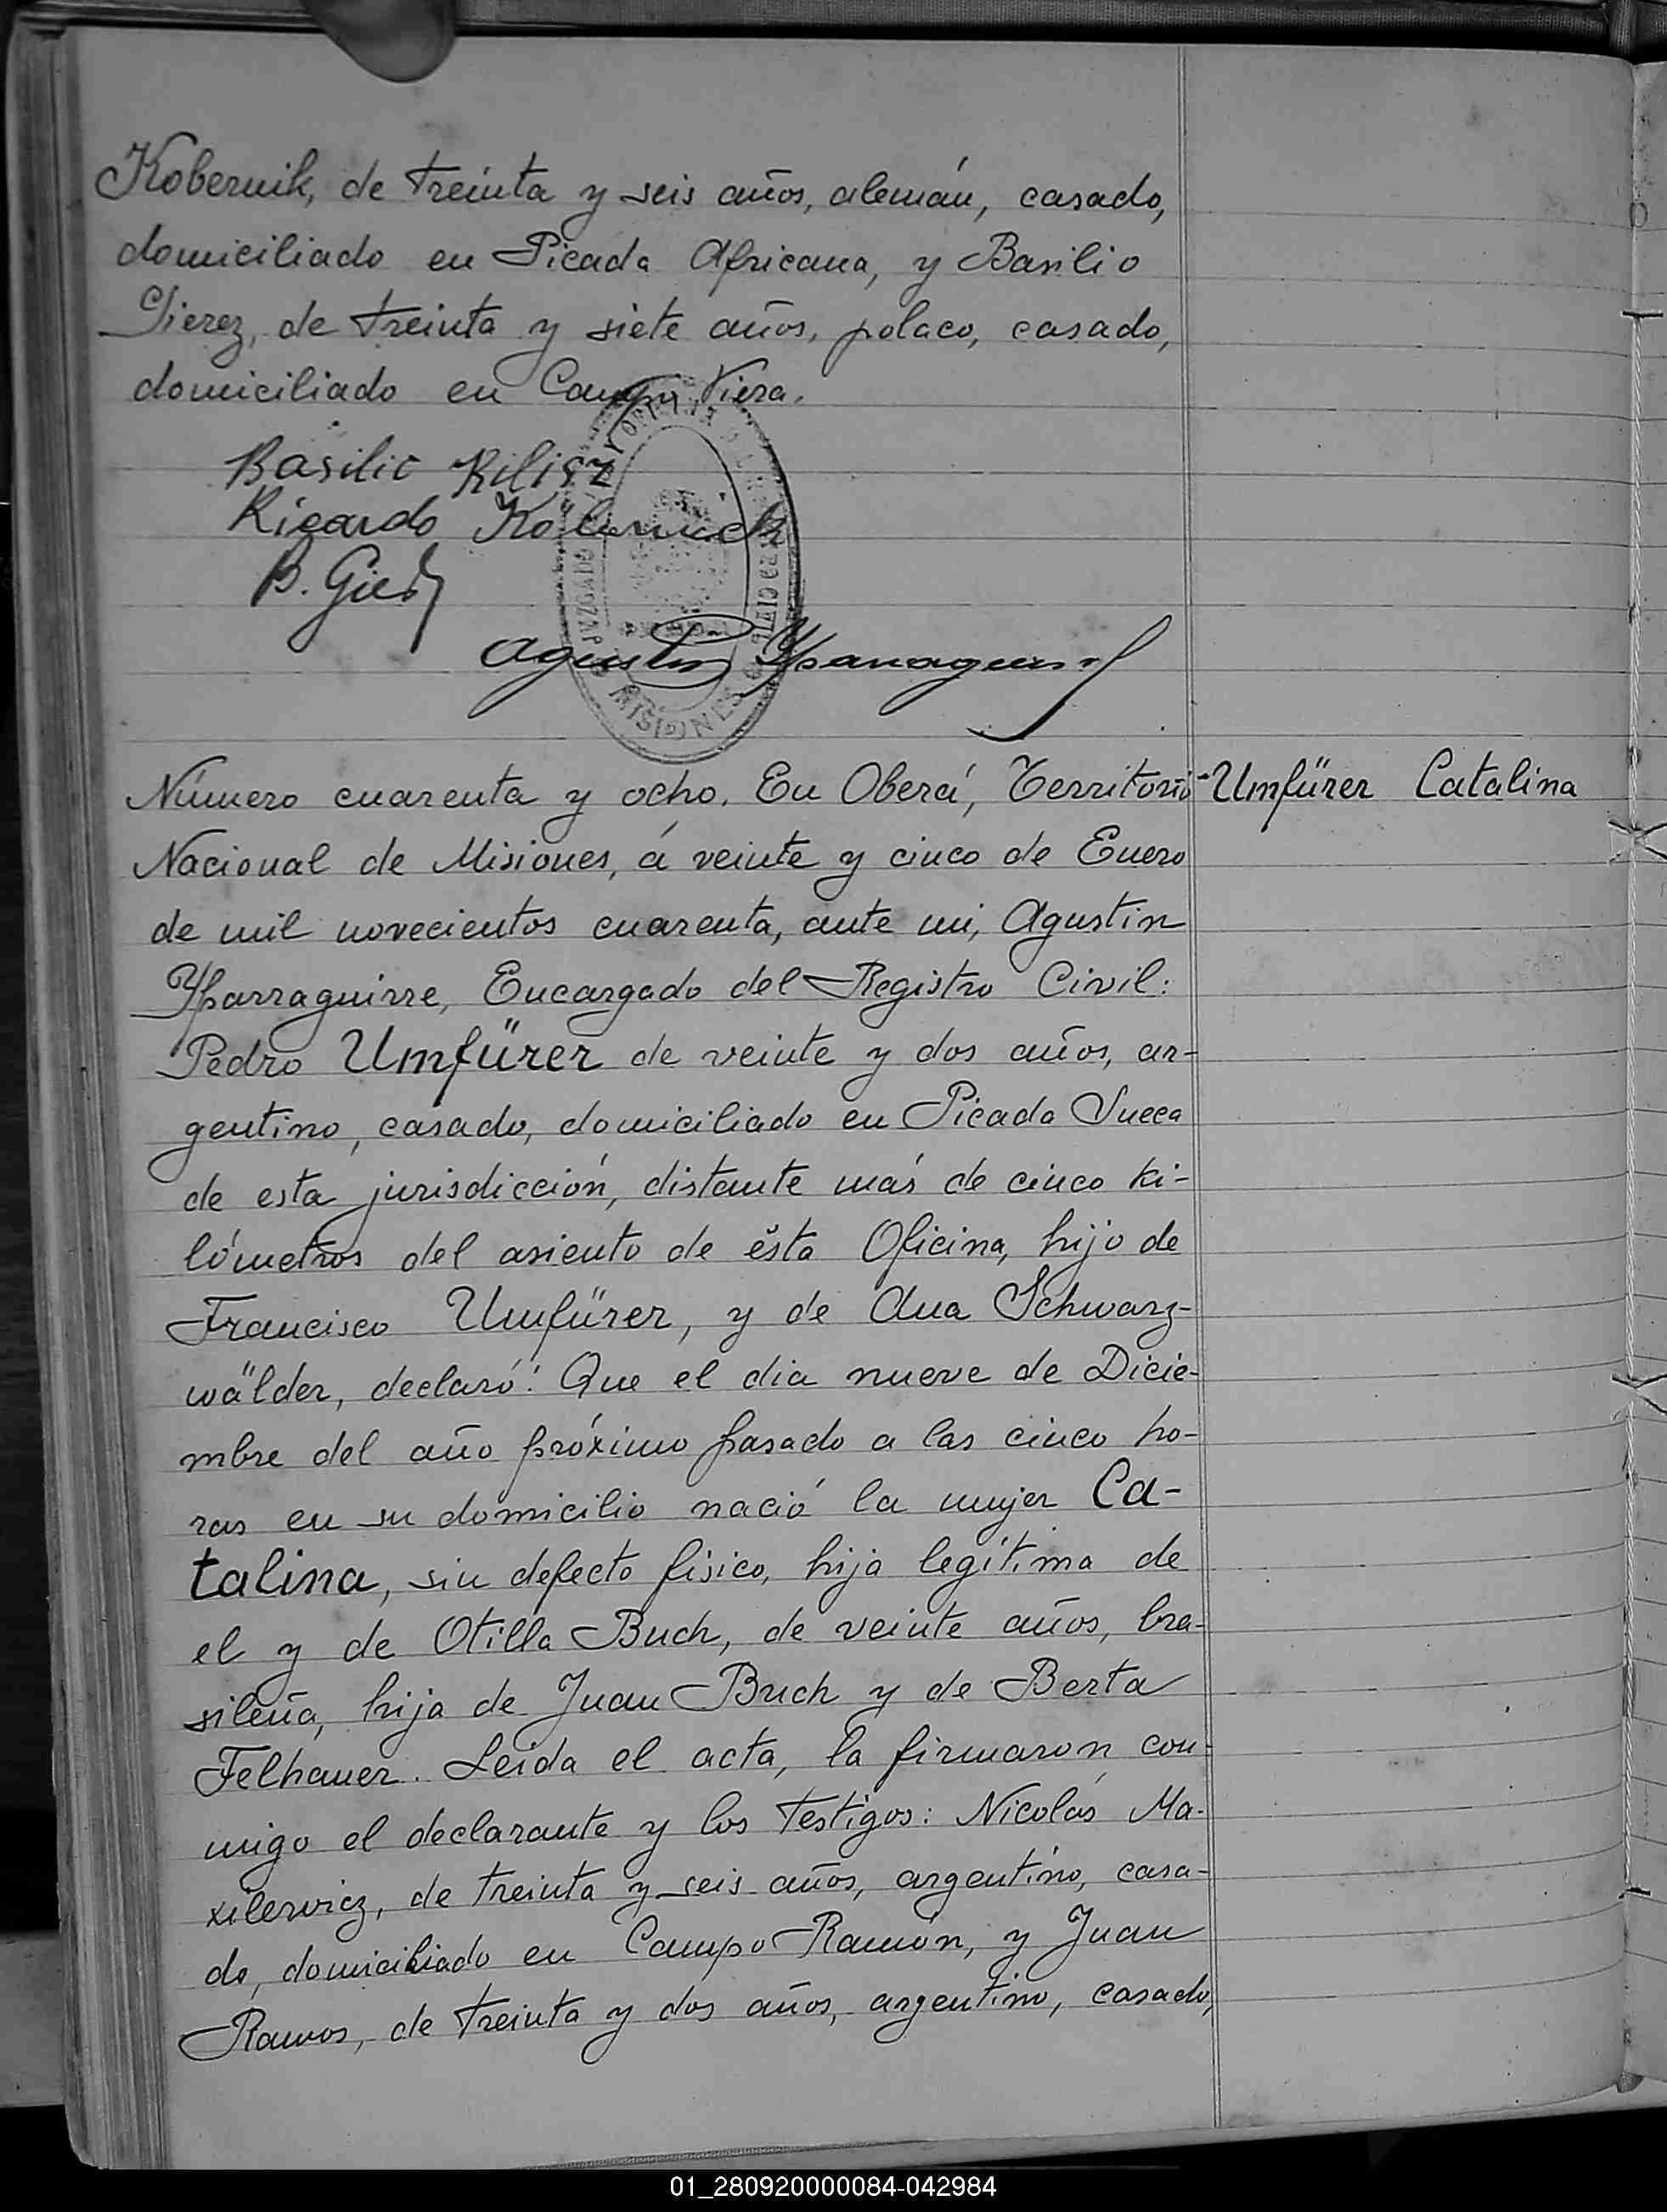 Kobernik, de treinta y seis años, alemán, casado,
domiciliado en Picada Africana, y Basilio
Gierez, de treinta y siete años, polaco, casado,
domiciliado en Campo Viera.
Basilio
Ricardo
B.
Agustin
MISIONES
Número cuarenta y ocho. En Oberá, Territorio
Umfürer Catalina
Nacional de Misiones, á veinte y cinco de Enero
de mil novecientos cuarenta, ante mi, Agustin
Yparraguirre, Encargado del Registro Civil:
Pedro Umfürer de veinte y dos años, ar-
gentino, casado, domiciliado en Picada Sueca
de esta jurisdicción, distante más de cinco ki-
lómetros del asiento de ésta Oficina, hijo de
Francisco Umfürer, y de Ana Schwarz-
wälder, declaró: Que el dia nueve de Dicie-
mbre del año próximo pasado a las cinco ho-
ras en su domicilio nació la mujer Ca-
talina, sin defecto físico, hija legítima de
el y de Otilla Buch, de veinte años, bra-
sileña, hija de Juan Buch y de Berta
Felhauer. Leida el acta, la firmaron con-
migo el declarante y los testigos: Nicolás Ma-
xilewicz, de treinta y seis años, argentino, casa-
do, domiciliado en Campo Ramón, y Juan
Ramos, de treinta y dos años, argentino, casado,
01_280920000084-042984